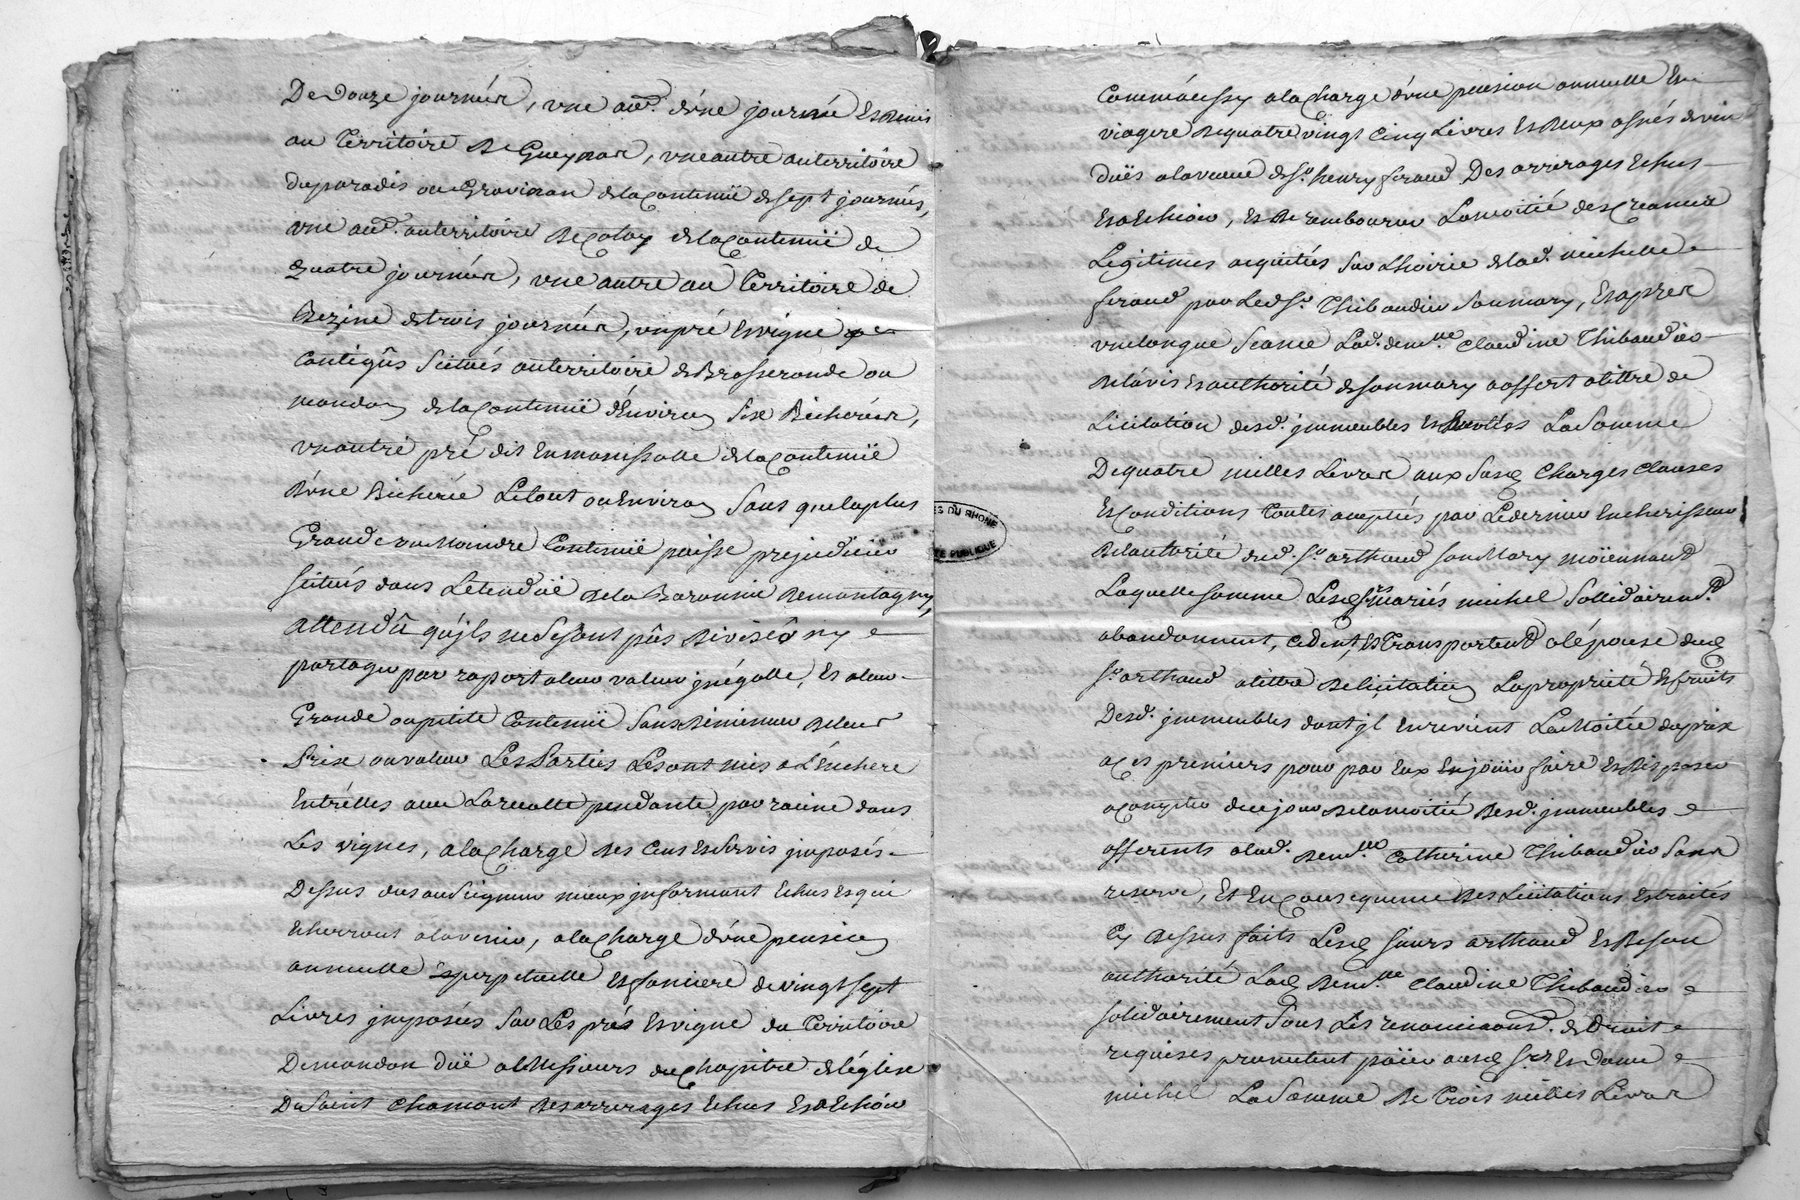 De douze journées, une autre d'une journée Et demis
au Territoire de Gueynan, une autre au territoire
du paradis ou Gravinan de la Contenuë de sept journés,
une autre au territoire de Colay de la Contenuë de
Quatre journées, une autre au Territoire de
Bezine de trois journées, un pré Et vigne
Contigûs Scitués au territoire de Brosseronde ou
mandon de la Contenuë d'Environ Six Bicherées,
un autre pré dit En manissolle de la Contenuë
d'une Bicherée Le tout ou Environ Sans que la plus
Grande ou Moindre Contenuë puisse prejudicier
scitués dans L'etenduë de la Baronnie de montagny,
attendû qu'jls ne Sesont pûs diviser ny
partager par raport a leur valeur jnégalle, Et a leur
Grande ou petite Contenuë Sans diminuer de leur
Prix ou valeur Les Parties Les ont mis a L'Enchere
Entr'elles avec La recolte pendante par racine dans
Les vignes, a la Charge des Cens Et Servis jmposés
Dessus dus au Seigneur mieux jnformant Echus Et qui
Echerront a l'avenir, a la Charge d'une pension
annuelle Et perpetuelle Et fonciere de vingt sept
Livres jmposées Sur Les prés Et vigne du Territoire
De mandon düe a Messieurs du Chapitre de l'église
De Saint Chamont des arrerages Echus Et a Echoir
Comme aussy a la Charge d'une pension annuelle Et
viagere de quatre vingt Cinq Livres Et deux asnés de vin
duës a la veuve de Sr. henry feraud Des arrerages Echus
Et a Echoir, Et de rembourser La moitié des Creances
Legitimes acquités Sur L'hoirie de lad. michelle
feraud par Led. Sr. Thibaudier Son mary, Et après
une longue Seance Lad. demlle Claudine Thibaudier
de l'avis Et authorité de Son mary a offert a tittre de
Licitation desd. jmmeubles Et La Somme
De quatre milles Livres aux Susd. Charges Clauses
Et Conditions Toutes acceptées par Le dernier Encherisseur
de l'autorité dud. Sr. arthaud Son Mary moïennant
Laquelle somme Lesd. Srs mariés michel Sollidairemt.
abandonnent, Cedent, Et Transportent a l'épouse dud.
Sr. arthaud a tittre de licitation La proprieté Et fruits
Desd. jmmeubles dont jl En revient La Moitié du prix
a ces premiers pour par Eux En joüir faire Et disposer
a Compter de ce jour de la moitié desd. jmmeubles
afferents a lad. demlle Catherine Thibaudier Sans
reserve, Et En Consequence des Licitations Et traités
Cy dessus faits Lesd. Sieurs arthaud Et de Son
authorité Lad. demlle Claudine Thibaudier
solidairement Sous Les renonciaons. de Droit
requises promettent païer ausd. Srs Et Dame
michel La Somme de Trois milles Livres
ES DU RHONE
TE PUBLIQUE